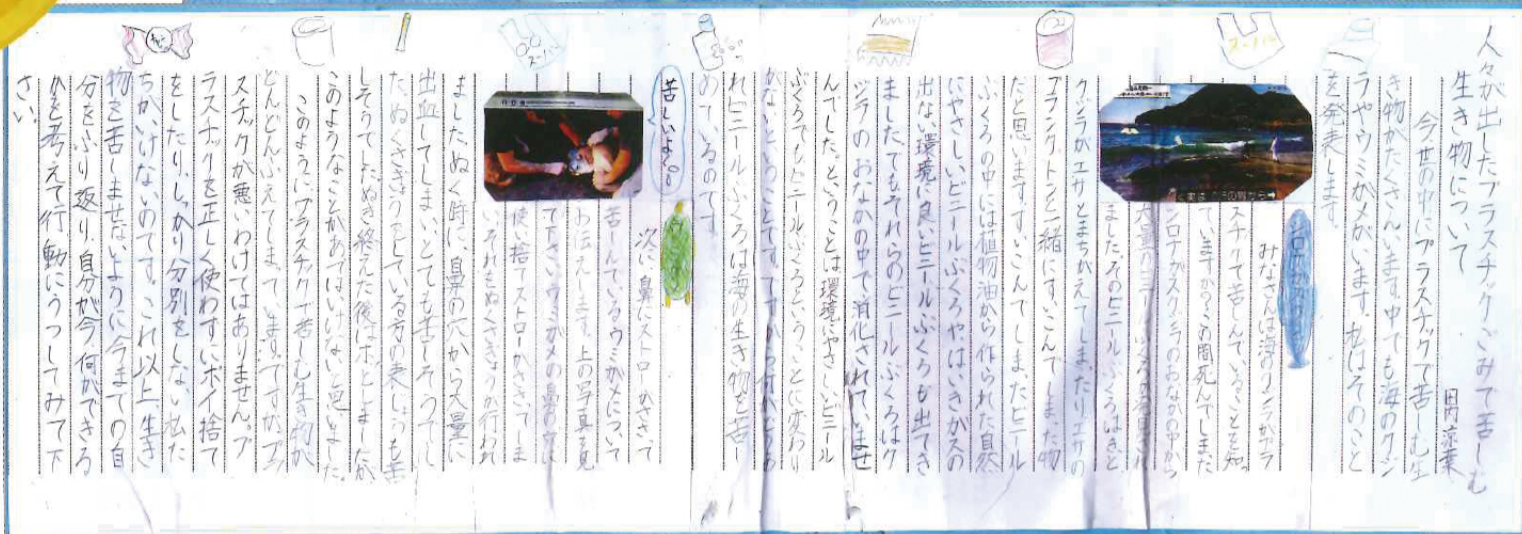 人々が出したプラスチックごみで苦しむ
生き物について
田内涼葉
今世の中にプラスチックで苦しむ生
き物がたくさんいます。中でも海のクジ
ラやウミガメがいます。私はそのこと
を発表します。
みなさんは海のクジラがプラ
スチックで苦しんでいることを知
っていますか？この間死んでしまった
シロナガスクジラのおなかの中から
大量のビニールぶくろが発見され
ました。そのビニールぶくろはきっと
クジラがエサとまちがえてしまったりエサの
プランクトンと一緒にすいこんでしまった物
だと思います。すいこんでしまったビニール
ぶくろの中には植物油から作られた自然
にやさしいビニールぶくろや、はいきガスの
出ない環境に良いビニールぶくろが出てき
ました。でもそれらのビニールぶくろはク
ジラのおなかの中で消化されていませ
んでした。ということは環境にやさしいビニール
ぶくろでもビニールぶくろということに変わり
がないということです。ですから
れビニールぶくろは海の生き物を苦し
めているのです。
苦しいよ〜。
次に、鼻にストローがささって
苦しんでいるウミガメについて
お伝えします。上の写真を見
て下さい。ウミガメの鼻の穴に
使い捨てストローがささってしま
いそれをぬくさぎょうが行われ
ました。ぬく時に、鼻の穴から大量に
出血してしまいとても苦しそうでし
た。ぬくさぎょうをしている方の表じょうも苦
しそうでした。ぬき終えた後はホッとしましたが
このようなことがあってはいけないと思いました。
このようにプラスチックで苦しむ生き物が
どんどんふえてしまっています。ですが、プラ
スチックが悪いわけではありません。プ
ラスチックを正しく使わずにポイ捨て
をしたり、しっかり分別をしない私た
ちがいけないのです。これ以上、生き
物を苦しませないように今までの自
分をふり返り、自分が今何ができる
かを考えて行動にうつしてみて下
さい。
スーパー